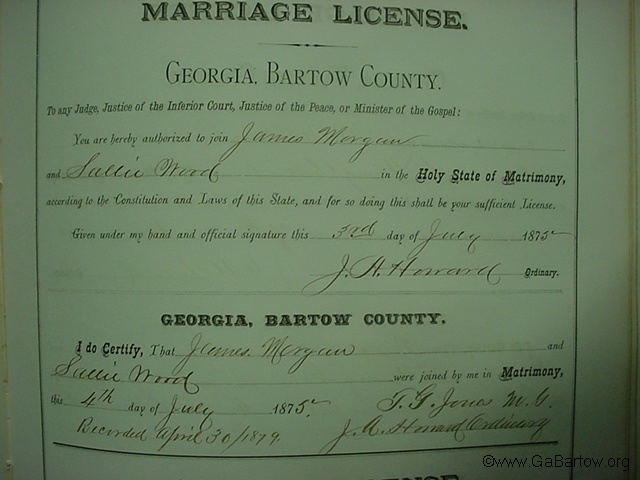 MARRIAGE LICENSE.
GEORGIA, BARTOW COUNTY.
To any Judge, Justice of the Inferior Court, Justice of the Peace, or Minister of the Gospel:
You are hereby authorized to join James Morgan
and Sallie Wood in the Holy State of Matrimony,
according to the Constitution and Laws of this State, and for so doing this shall be your sufficient License.
Given under my hand and official signature this 3rd day of July 1875
J. A. Howard Ordinary.
GEORGIA, BARTOW COUNTY.
I do Certify, That James Morgan and
Sallie Wood were joined by me in Matrimony,
this 4th day of July 1875. T. G. Jones M. G.
Recorded April 30/1879. J. A. Howard Ordinary
©www.GaBartow.org